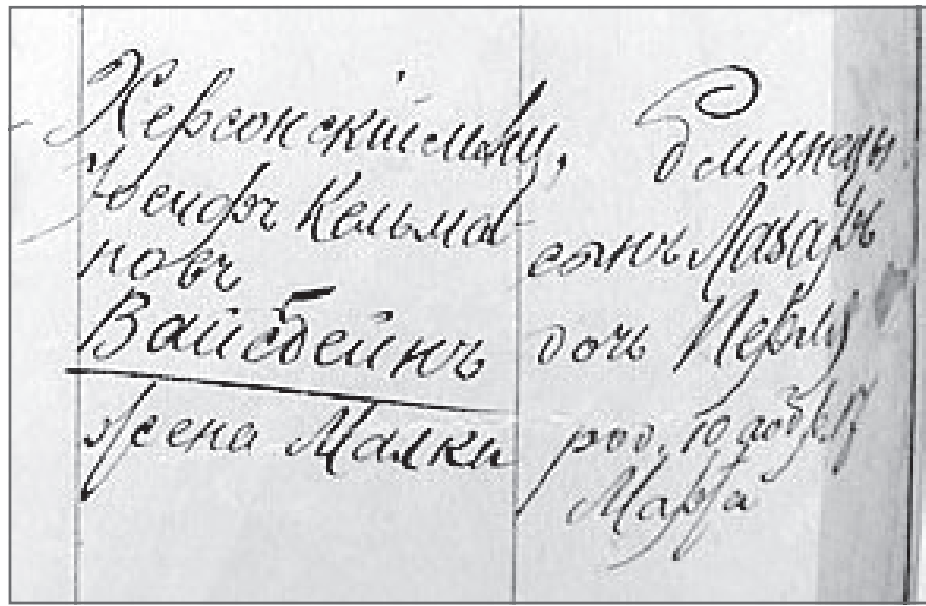 Херсонскій мѣщ,
Іосифъ Кельма-
новъ
Вайсбейнъ
жена Малки
близнецы.
сынъ Лазарь
дочь Перля
род. 10
Марта